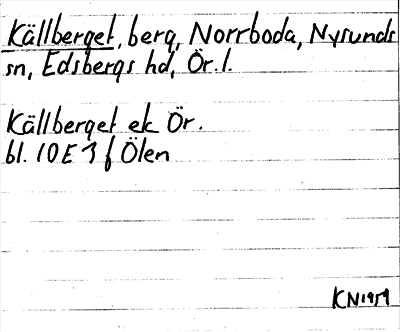 Källberget, berg, Norrboda, Nysunds
sn, Edsbergs hd, Ör. l.
Källberget ek Ör.
bl. 10E 3 f Ölen
KN1959